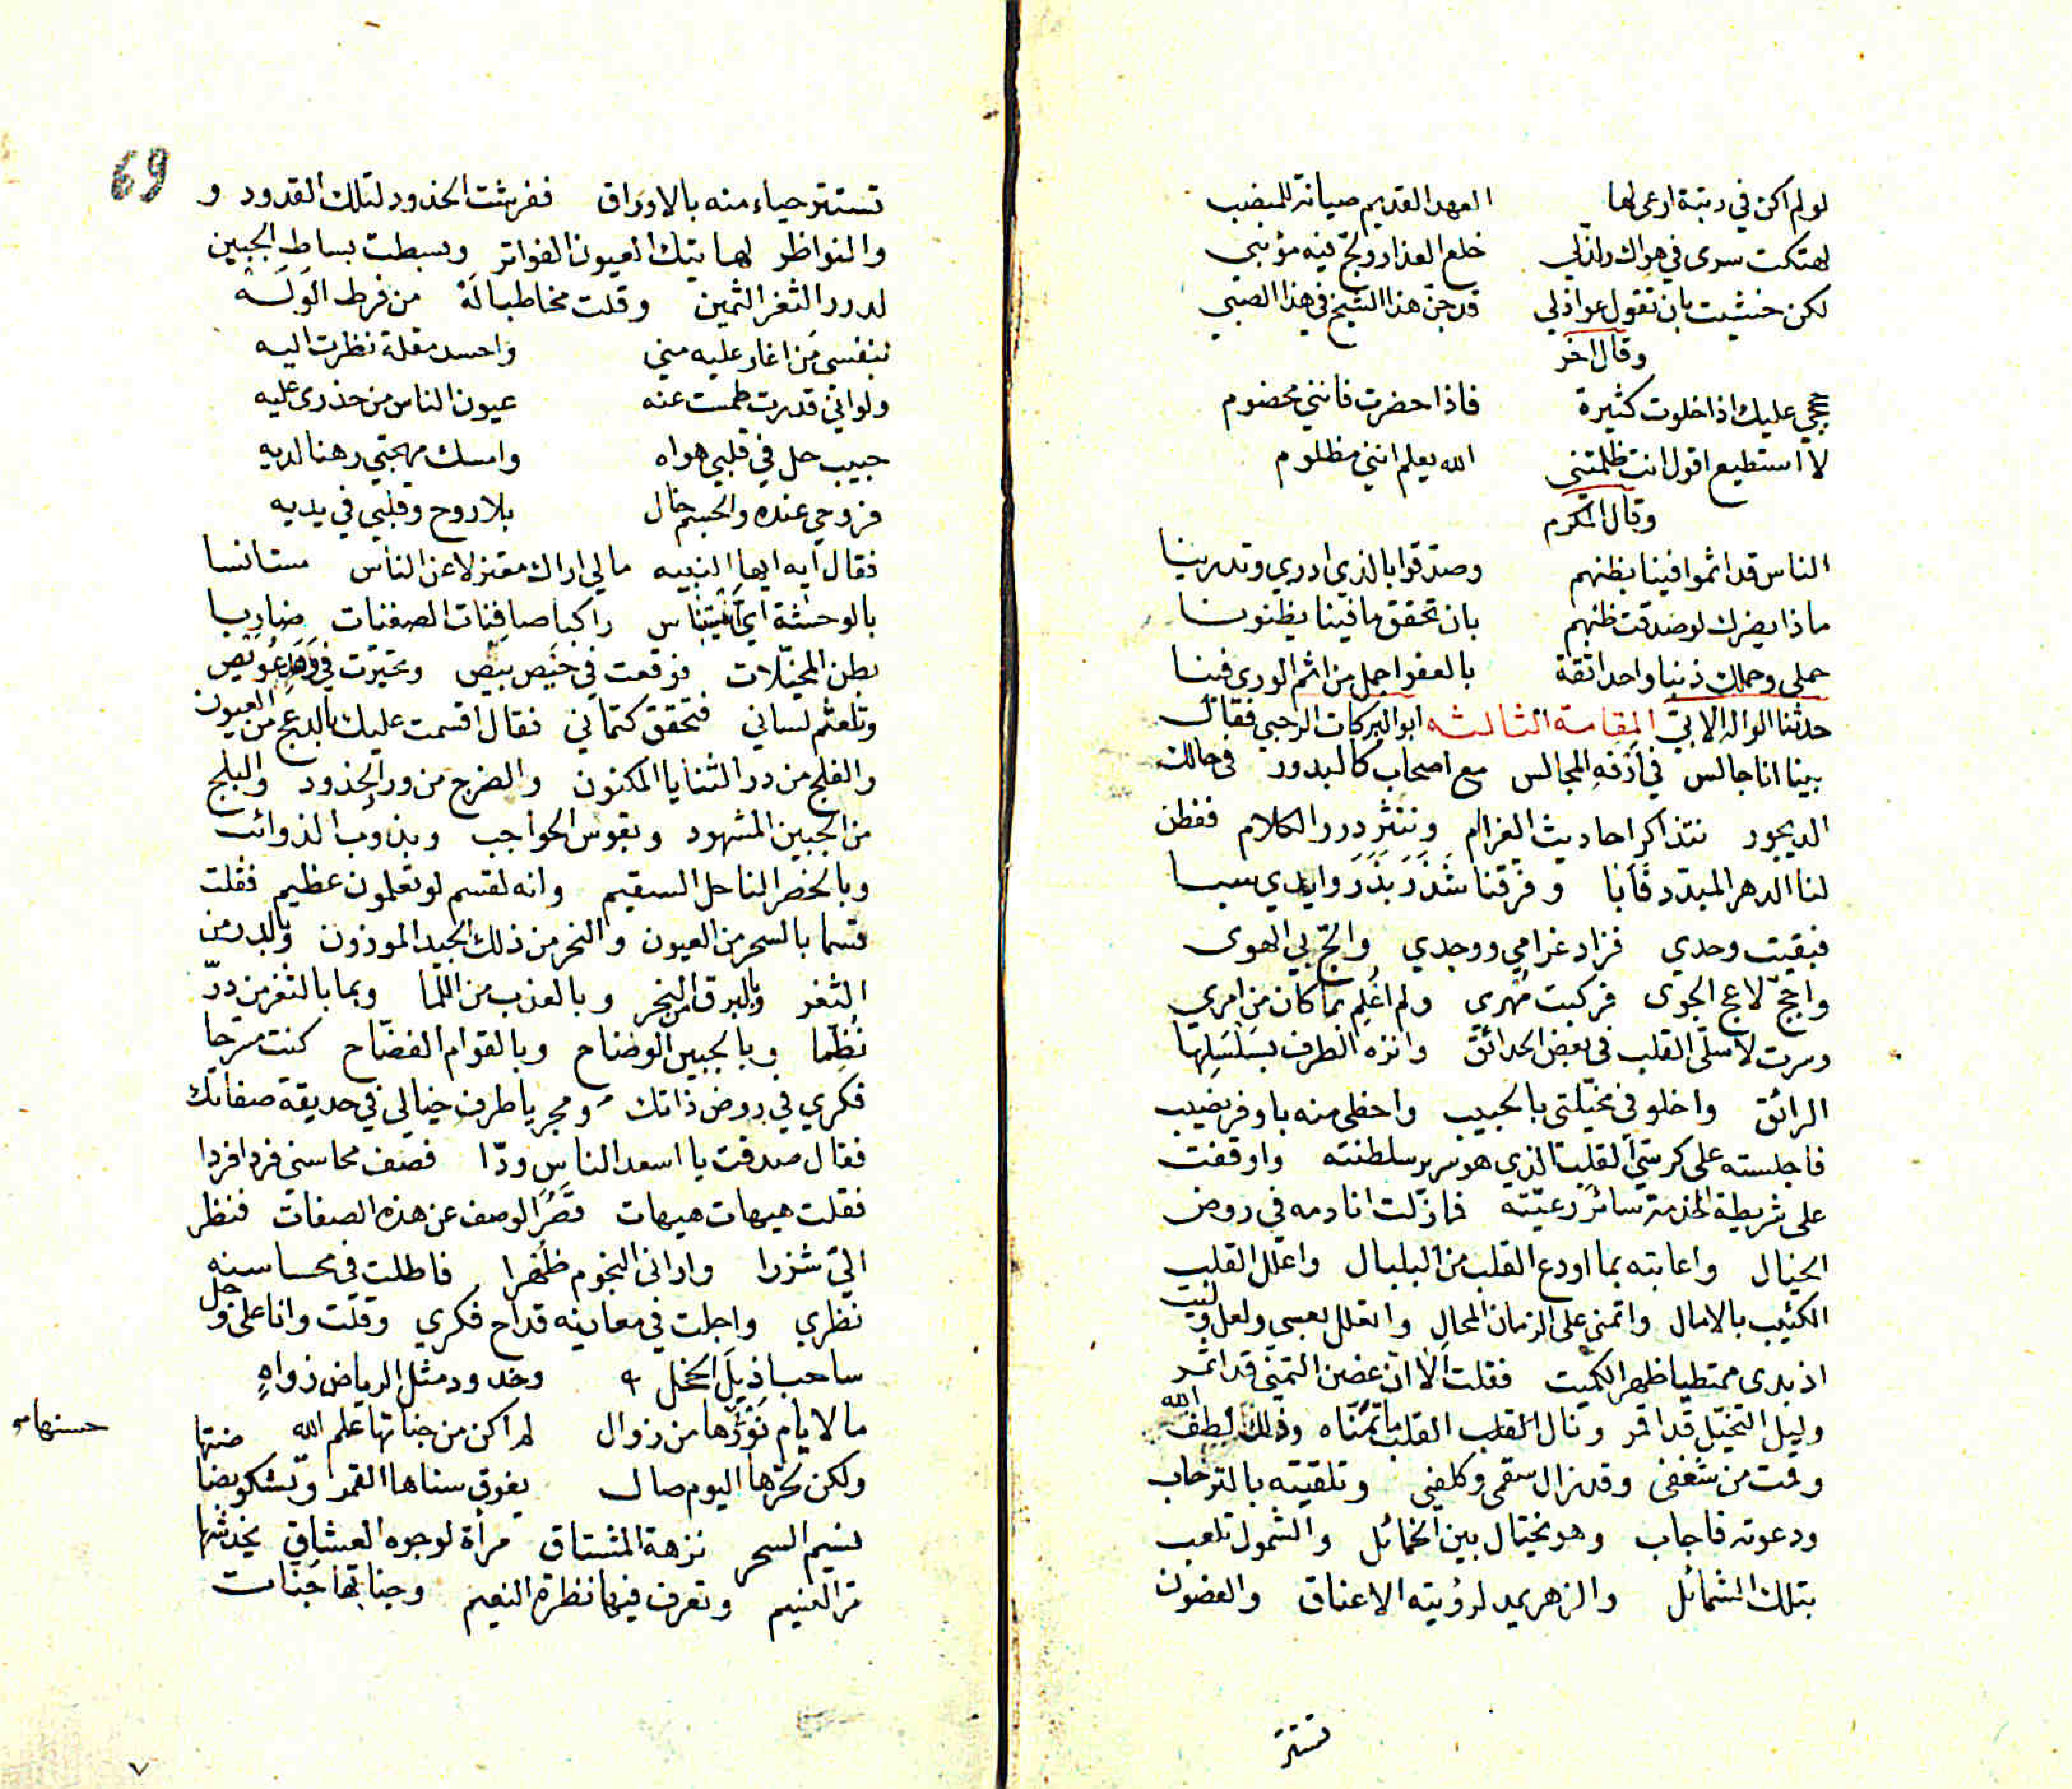 لو لم اكن في رتبة ارعى لها العهد القديم صيانة للمنصب
لهتكت سري في هواك ولذ لي خلع العذار ولج فيه مؤنبي
لكن خشيت بان تقول عواذلي قد جن هذا الشيخ في هذا الصبي
وقال اخر
حججي عليك اذا خلوت كثيرة فاذا حضرت فانني مخصوم
لا استطيع اقول انت ظلمتني الله يعلم انني مظلوم
وقال المكرم
الناس قد اثموا فينا بظنهم وصدقوا بالذي ادري وتدرينا
ماذا يضرك لو صدقت ظنهم بان تحقق ما فينا يظنونا
حملي وحملك ذنبا واحدا ثقة بالعفو اجمل من اثم الورى فينا
المقامة الثالثه حدثنا الواله الابي ابو البركات الرحبي فقال
بينا انا جالس في ارفه المجالس مع اصحاب كالبدور في حالك
الديجور نتذاكر احاديث الغرام وننثر درر الكلام ففطن
لنا الدهر المبدد فابا وفرقنا شذر بذر وايدي سبا
فبقيت وحدي فزاد غرامي ووجدي والج بي الهوى
واجج لاعج الجوى فركبت مهرى ولم اعلم بما كان من امري
وسرت لاسلى القلب في بعض الحدائق وانزه الطرف بسلسلها
الرائق واخلو في مخيلتي بالحبيب واحظى منه باوفر نصيب
فاجلسته على كرسي القلب الذي هو سرير سلطنته واوقفت
على شريطة الخدمة سائر رعيته فما زلت انادمه في روض
الخيال واعاتبه بما اودع القلب من البلبال واعلل القلب
الكئيب بالامال واتمنى على الزمان المحال واتعلل بعسى ولعل وليت
اذ بدى ممتطيا ظهر الكميت فقلت الا ان غصن التمني قد اثمر
وليل التخيل قد اقمر ونال القلب القلب ما تمناه وذلك لطف الله
وقمت من شغفي وقد زال سقمي وكلفي وتلقيته بالترحاب
ودعوته فاجاب وهو يختال بين الخمائل والشمول تلعب
بتلك الشمائل والزهر يمد لرؤيته الاعناق والغصون
تستتر
69
تستتر حياء منه بالاوراق ففرشت الخدود لتلك القدود و
والنواظر لهاتيك العيون الفواتر وبسطت بساط الجبين
لدرر الثغر الثمين وقلت مخاطبا له من فرط الوله
بنفسي من اغار عليه مني واحسد مقلة نظرت اليه
ولو اني قدرت طمست عنه عيون الناس من حذري عليه
حبيب حل في قلبي هواه وامسك مهجتي رهنا لديه
فروحي عنده والجسم خال بلا روح وقلبي في يديه
فقال ايه ايها النبيه مالي اراك معتزلا عن الناس مستانسا
بالوحشة اي راكبا صافنات الصفنات ضاربا
بطن المخيلات فوقعت في حيص بيص وتحيرت في عويص
وتلعثم لساني فتحقق كتماني فقال اقسمت عليك بالدعج من العيون
والفلج من در الثنايا المكنون والضرج من ورد الخدود والبلج
من الجبين المشهود وبقوس الحواجب وبذوب الذوائب
وبالخصر الناحل السقيم وانه لقسم لو تعلمون عظيم فقلت
قسما بالسحر من العيون والنحر من ذلك الجيد الموزون وبالدر من
الثغر وبالبرق من النحر وبالعذب من اللما وبما بالثغر من در
نظما وبالجبين الوضاح وبالقوام الفضاح كنت مسرحا
فكري في روض ذاتك ومجريا طرف خيالي في حديقة صفاتك
فقال صدقت يا اسعد الناس ودا فصف محاسني فردا فردا
فقلت هيهات هيهات قصر الوصف عن هذه الصفات فنظر
الي شزرا واراني النجوم ظهرا فاطلت في محاسنه
نظري واجلت في معانيه قداح فكري وقلت وانا على وجل
ساحبا ذيل الخجل وخدود مثل الرياض زواه
ما لايام نورها من زوال لم اكن من جناتها علم الله
ولكن بحرها اليوم صال يفوق سناها القمر وتشكو
حسنها
نسيم السحر نزهة المشتاق مرأة لوجوه العشاق يخدشها
مر النسيم وتعرف فيها نظرة النعيم وجناتها جنات
٧